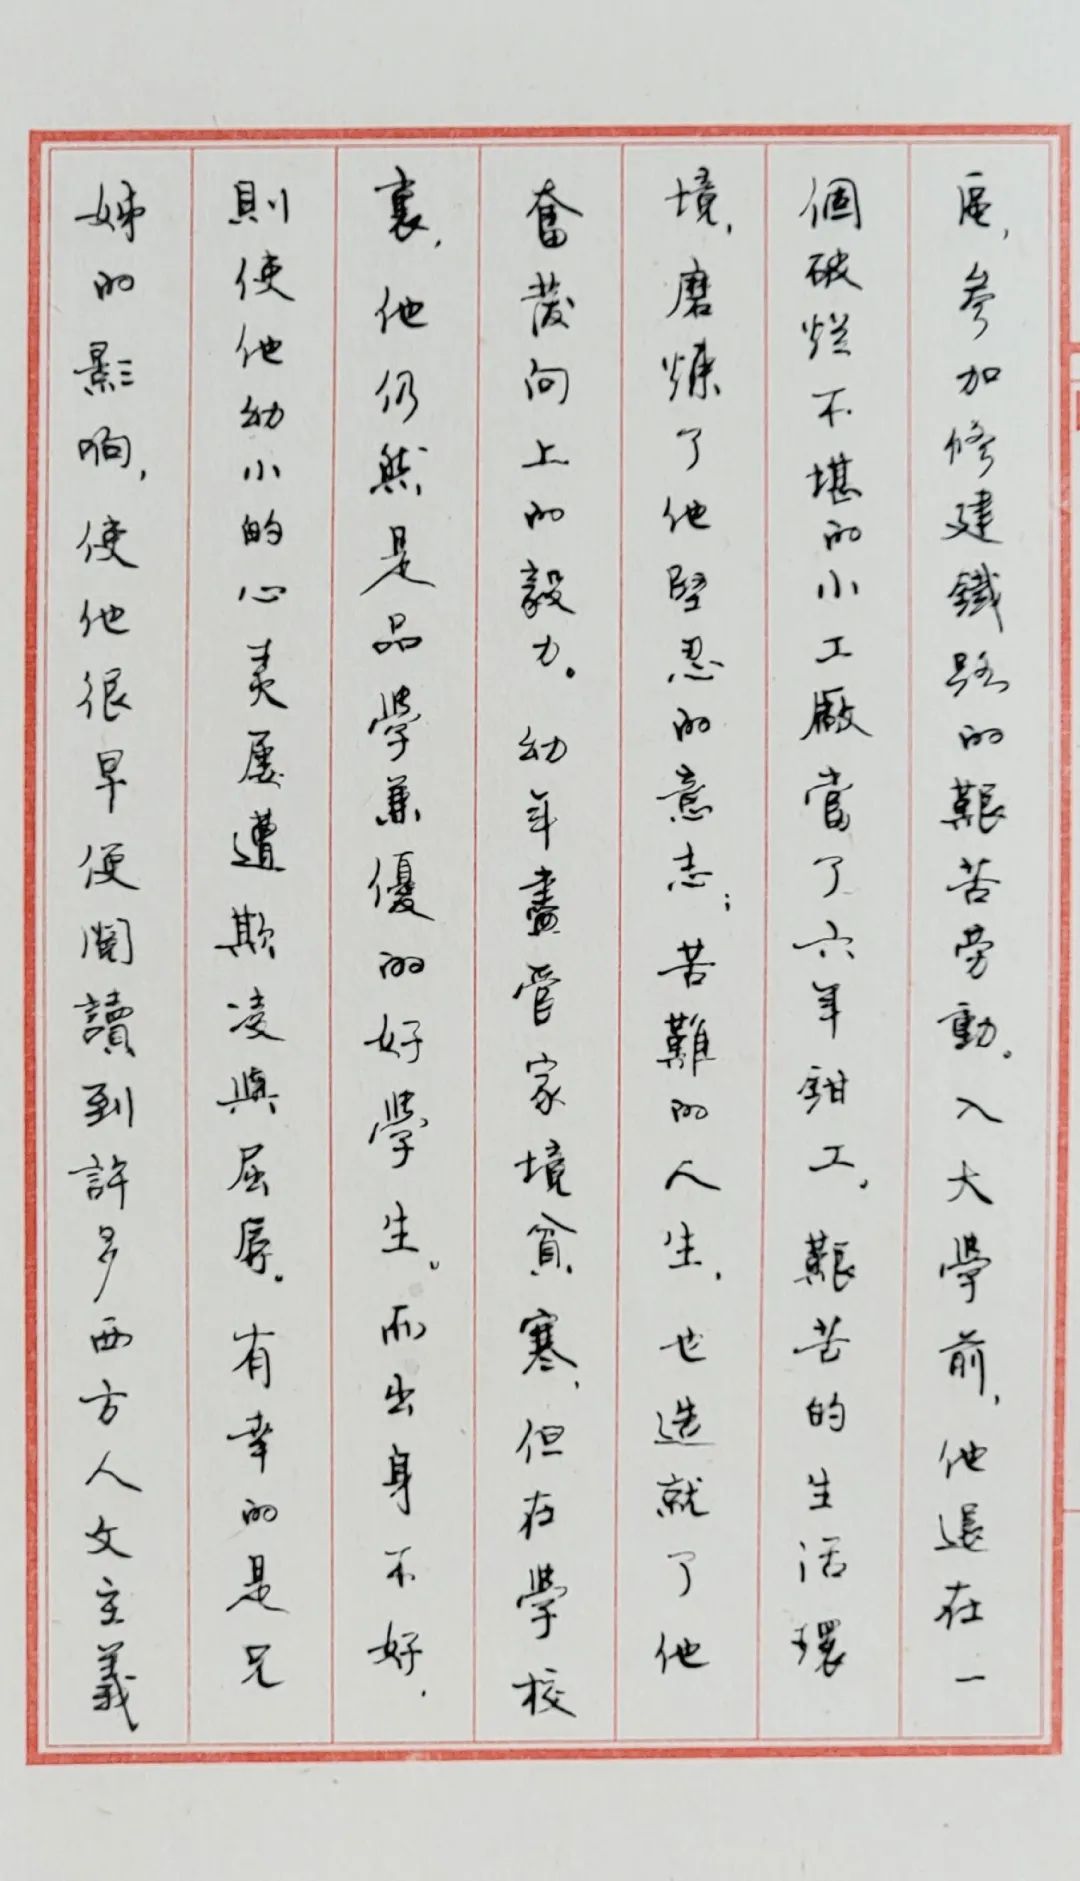 區，參加修建鐵路的艱苦勞動。入大學前，他還在一
個破爛不堪的小工廠當了六年鉗工。艱苦的生活環
境，磨煉了他堅忍的意志；苦難的人生，也造就了他
奮發向上的毅力。幼年儘管家境貧寒，但在學校
裏，他仍然是品學兼優的好學生。而出身不好，
則使他幼小的心灵屡遭欺凌與屈辱。有幸的是兄
姊的影响，使他很早便閱讀到許多西方人文主義